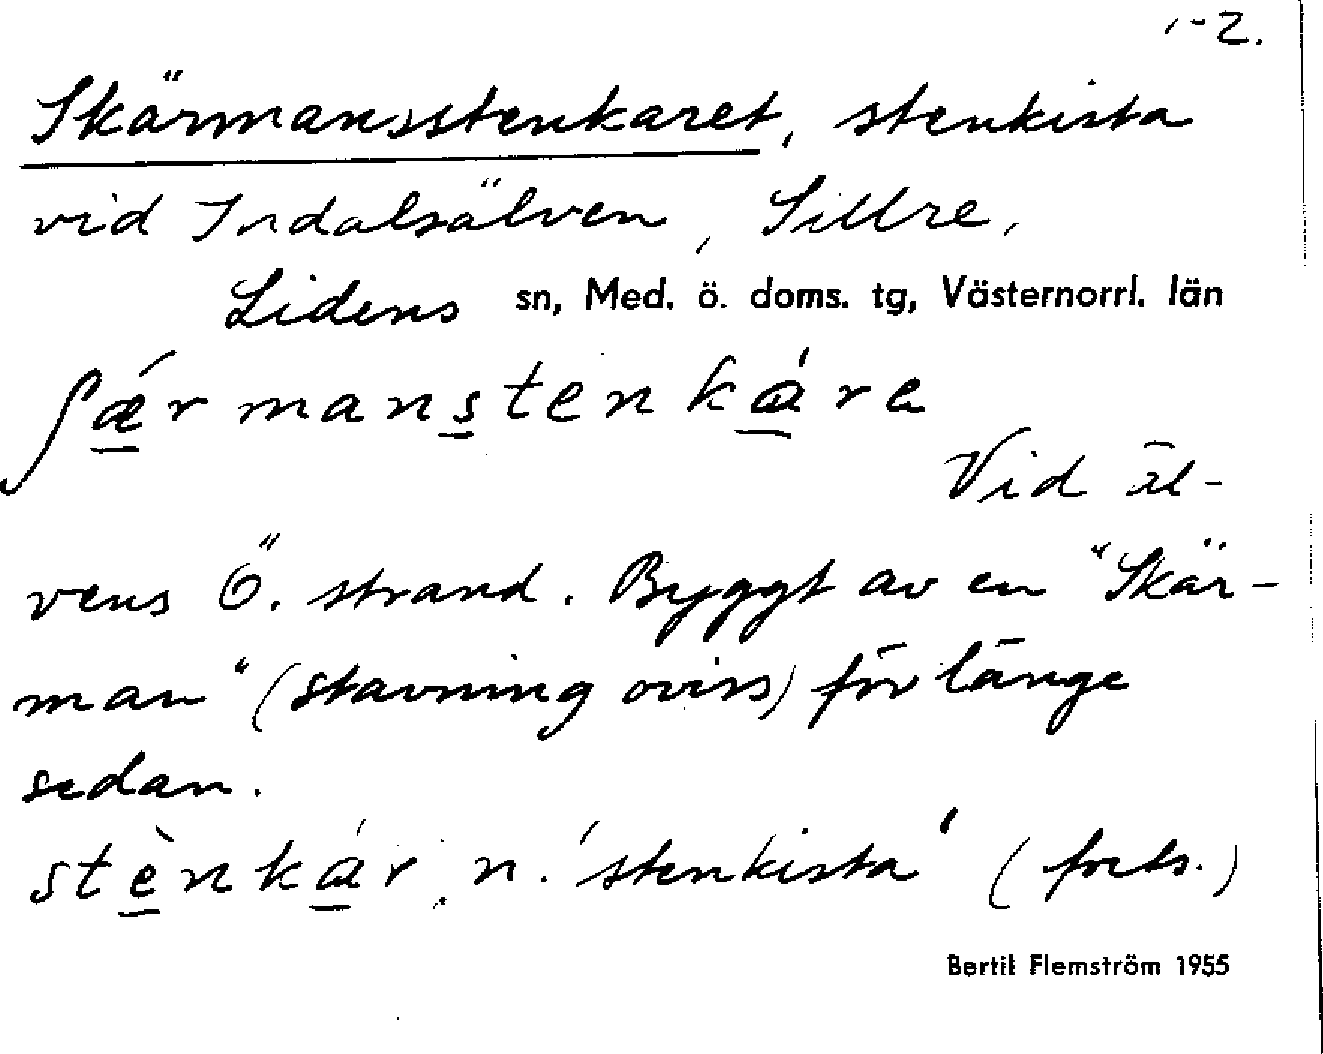 1-2.
Skärmansstenkaret, stenkista
vid Indalsälven, Sillre,
Lidens sn, Med. ö. doms. tg, Västernorrl. län
ʃǽ̠rmans̠tenká̠re
Vid äl-
vens Ö. strand. Byggt av en "Skär-
man" (stavning oviss) för länge
sedan.
stè̠nká̠r, n. 'stenkista' (forts.)
Bertil Flemström 1955